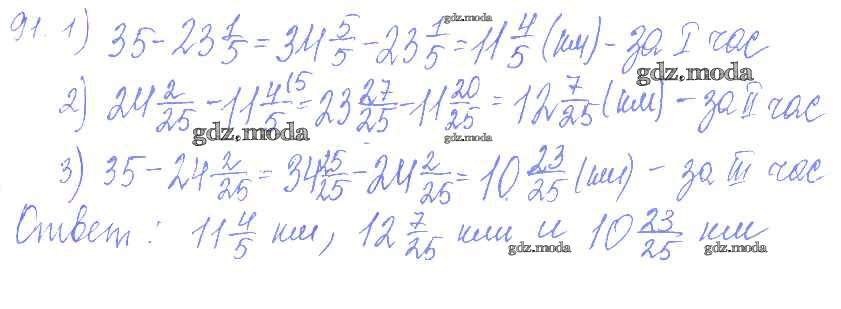 gdz.moda
91. 1) 35 - 23 1/5 = 34 5/5 - 23 1/5 = 11 4/5 (км) - за I час
gdz.moda
2) 24 2/25 - 11 4/5 (5 = 23 27/25 - 11 20/25 = 12 7/25 (км) - за II час
gdz.moda gdz.moda
3) 35 - 24 2/25 = 34 25/25 - 24 2/25 = 10 23/25 (км) - за III час
Ответ: 11 4/5 км, 12 7/25 км и 10 23/25 км
gdz.moda gdz.moda